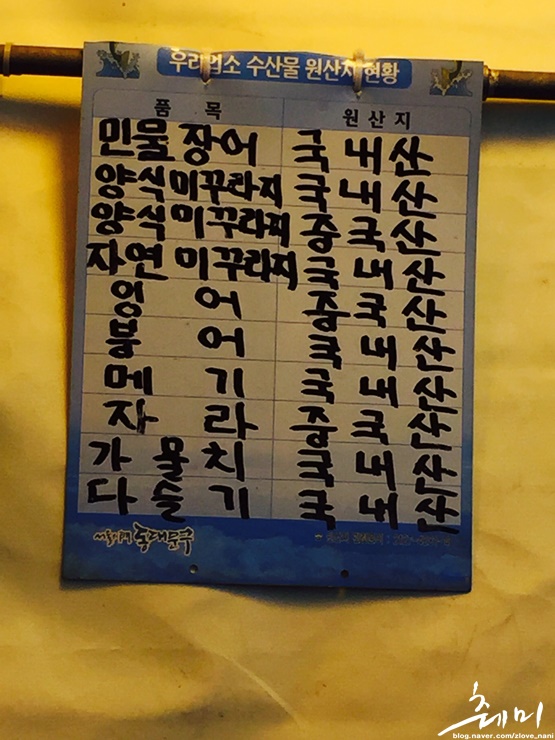 우리업소 수산물 원산지 현황
품 목 원 산 지
민물장어 국내산
양식미꾸라지 국내산
양식미꾸라지 중국산
자연미꾸라지 국내산
잉어 중국산
붕어 국내산
메기 국내산
자라 중국산
가물치 국내산
다슬기 국내산
동대문구
blog.naver.com/zlove_nani